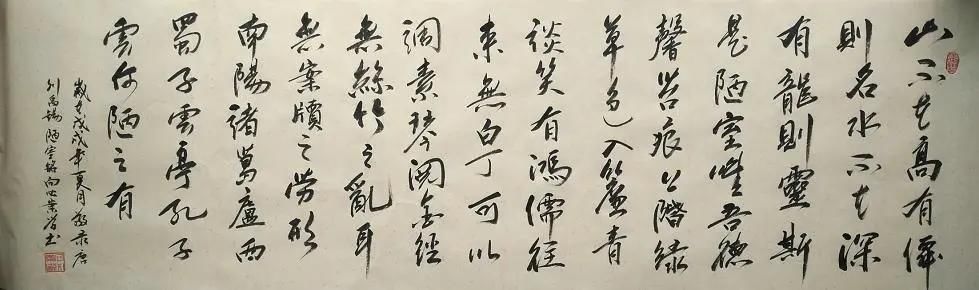 山不在高有僊
則名水不在深
有龍則靈斯
是陋室惟吾德
馨苔痕上階綠
草色入簾青
談笑有鴻儒往
來無白丁可以
調素琴閱金經
無絲竹之亂耳
無案牘之勞形
南陽諸葛廬西
蜀子雲亭孔子
雲何陋之有
歲在戊戌年夏月敬录唐
刘禹锡陋室铭书